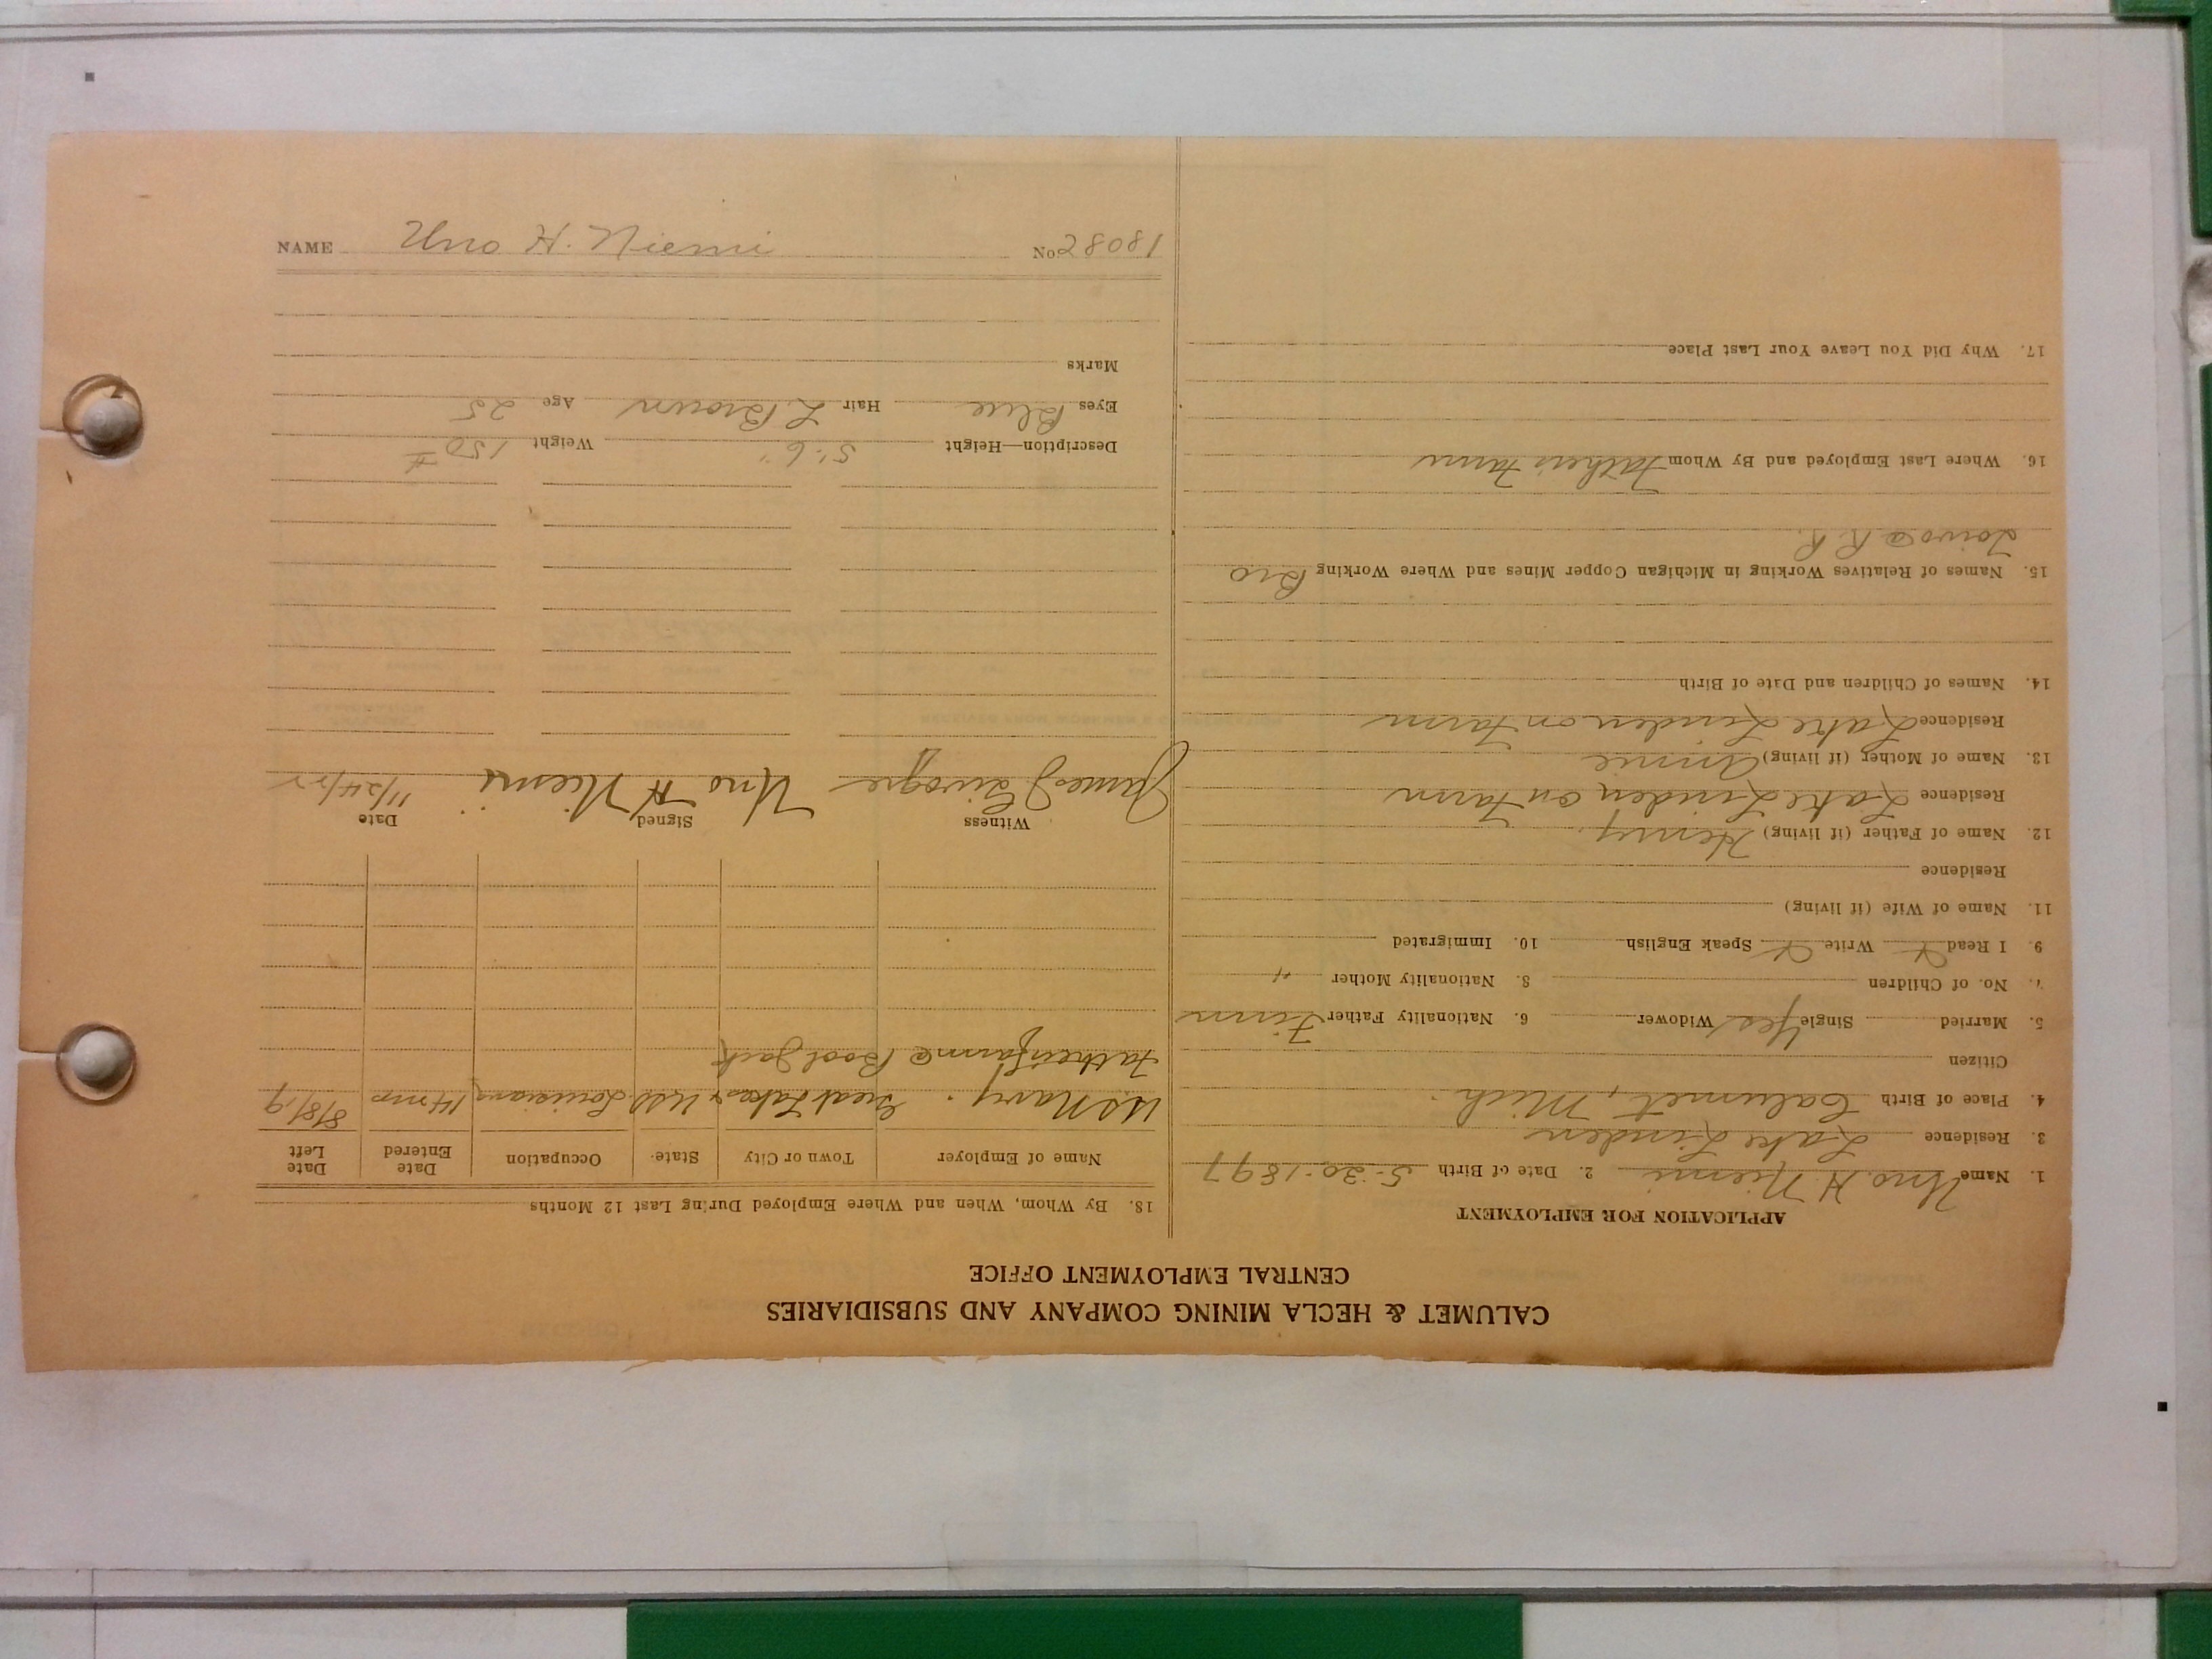 CALUMET & HECLA MINING COMPANY AND SUBSIDIARIES
CENTRAL EMPLOYMENT OFFICE
APPLICATION FOR EMPLOYMENT
1. Name Uno. H. Niemi 2. Date of Birth 5-30-1897
3. Residence Lake Linden
4. Place of Birth Calumet, Mich.
Citizen
5. Married Single Yes Widower 6. Nationality Father Finn
7. No. of Children 8. Nationality Mother "
9. I Read Write Speak English 10. Immigrated
11. Name of Wife (if living)
Residence
12. Name of Father (if living) Henry.
Residence Lake Linden on Farm
13. Name of Mother (if living) Annie
Residence Lake Linden on Farm
14. Names of Children and Date of Birth
15. Names of Relatives Working in Michigan Copper Mines and Where Working Bro
Toivo @ R.R.
16. Where Last Employed and By Whom Fathers Farm
17. Why Did You Leave Your Last Place
18. By Whom, When and Where Employed During Last 12 Months
Name of Employer Town or City State Occupation Date Entered Date Left
U.S Navy. Great Lakes & USS Louisiana 14 mo 8/8/19
Fathers farm @ Boot Jack
Witness Signed Date
James J Uno H Niemi 11/24/22
Description—Height 5'.6" Weight 150 #
Eyes Blue Hair L. Brown Age 25
Marks
NAME Uno H. Niemi No. 18082